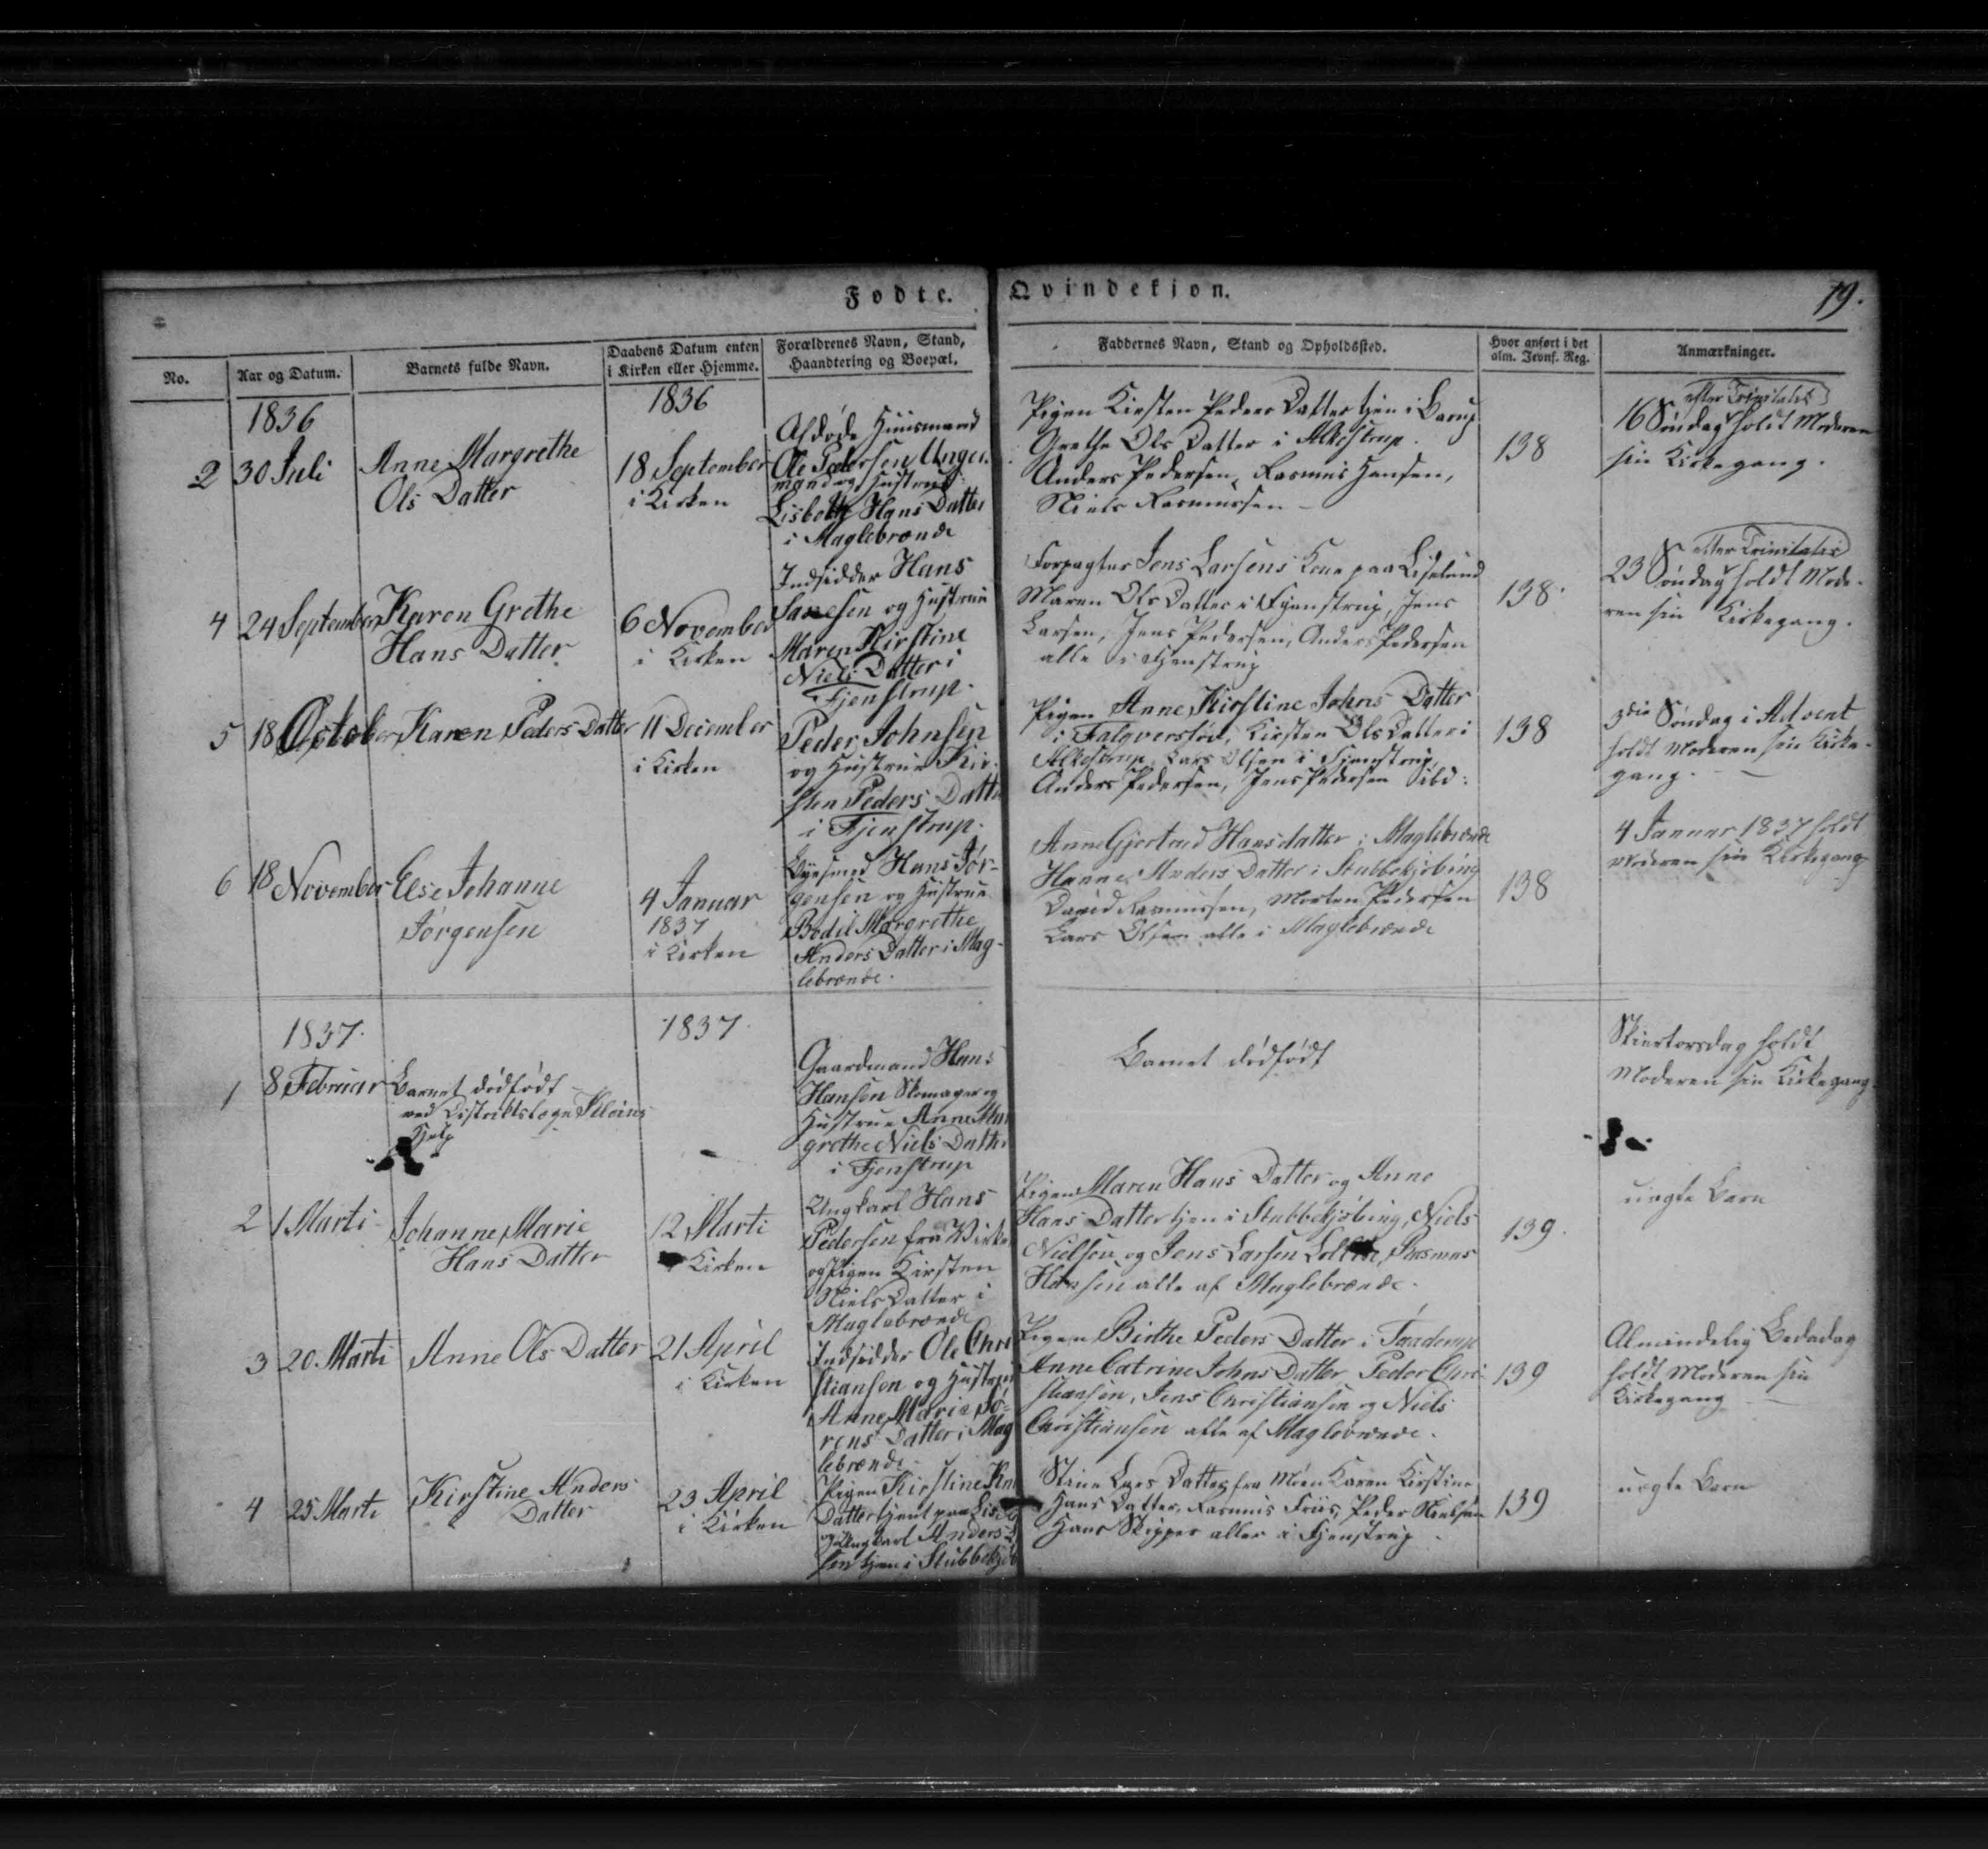 Fødte. Qvindekjøn. 79.
No. Aar og Datum. Barnets fulde Navn. Daabens Datum enten i Kirken eller Hjemme. Forældrenes Navn, Stand, Haandtering og Boepæl. Faddernes Navn, Stand og Opholdssted. Hvor anført i det alm. Jevnf. Reg. Anmærkninger.
1836
1836
2 30 Juli
Anne Margrethe
Ols Datter
18 September
i Kirken
Afdøde Huusmand
Ole Pedersen Unger
mand og Hustrue
Lisbeth Hans Datter
i Maglebrænde
Pigen Kirsten Peders Datter tjen i Barup
Grethe Ols Datter i Alkestrup.
Anders Pedersen, Rasmus Hansen,
Niels Rasmussen
138
efter Trinitatis
16 Søndag holdt Moderen
sin Kirkegang.
4 24 September
Karen Grethe
Hans Datter
6 November
i Kirken
Indsidder Hans
og Hustrue
Maren Kirstine
Niels Datter i
Fjenstrup.
Forpagter Jens Larsens Kone paa Liselund
Maren Ols Datter i Fjenstrup, Jens
Larsen, Jens Pedersen, Anders Pedersen
alle i Fjenstrup
138.
efter Trinitatis
23 Søndag holdt Mode-
ren sin Kirkegang.
5 18 October
Karen Peders Datter
11 December
i Kirken
Peder Johnsen
og Hustrue Kir-
sten Peders Datter
i Fjenstrup.
Pigen Anne Kirstine Johns Datter
i Falqverslev, Kirsten Ols Datter i
Alkestrup, Lars Olsen i Fjenstrup,
Anders Pedersen, Jens Pedersen ibid:
138
3die Søndag i Advent
holdt Moderen sin Kirke-
gang.
6 18 November
Else Johanne
Jørgensen
4 Januar
1837
i Kirken
Byesmed Hans Jør-
gensen og Hustrue
Bodil Margrethe
Anders Datter i Mag-
lebrænde.
Anne Gjertrud Hansdatter i Maglebrænde
Hanne Anders Datter i Stubbekjøbing
David Rasmussen, Morten Pedersen
Lars Olsen alle i Maglebrænde
138
4 Januar 1837 holdt
Moderen sin Kirkegang
1837.
1837.
1 8 Februar
Barnet dødfødt
ved Distriktslæge
Hjelp
Gaardmand Hans
Hansen Skomager og
Hustrue Anne Mar
grethe Niels Datter
i Fjenstrup
Barnet dødfødt
Skiertorsdag holdt
Moderen sin Kirkegang.
2 1 Marti
Johanne Marie
Hans Datter
12 Marti
i Kirken
Ungkarl Hans
Pedersen fra Virket
og Pigen Kirsten
Niels Datter i
Maglebrænde
Pigen Maren Hans Datter og Anne
Hans Datter tjen i Stubbekjøbing, Niels
Nielsen og Jens Larsen Rasmus
Hansen alle af Maglebrænde.
139.
uægte Barn
3 20 Marti
Anne Ols Datter
21 April
i Kirken
Indsidder Ole Chri
stiansen og Hustrue
Anne Marie Sø-
rens Datter i Mag
lebrænde.
Pigen Birthe Peders Datter i Taaderup
Anne Catrine Johns Datter Peder Chri-
stiansen, Jens Christiansen og Niels
Christiansen alle af Maglebrænde.
139
Almindelig Bededag
holdt Moderen sin
Kirkegang
4 25 Marti
Kirstine Anders
Datter
23 April
i Kirken
Pigen Kirstine
Datter tjent paa
og Ungkarl Anders
sen tjen i Stubbekjøb
Stine Lars Datter fra Møen Karen Kirstine
Hans Datter, Rasmus Friis, Peder Nielsen
Hans Skipper alle i Fjenstrup
139
uægte Barn